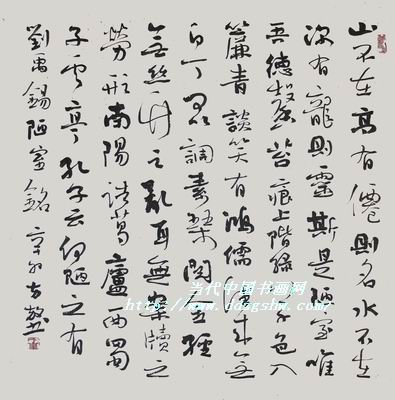 山不在高有僊則名水不在
深有龍則靈斯是陋室唯
吾德馨苔痕上階綠草色入
簾青談笑有鴻儒往來無
白丁可以調素琴閱金經
無絲竹之亂耳無案牘之
勞形南陽諸葛廬西蜀
子雲亭孔子云何陋之有
劉禹錫陋室銘 辛卯方
当代中国书画网